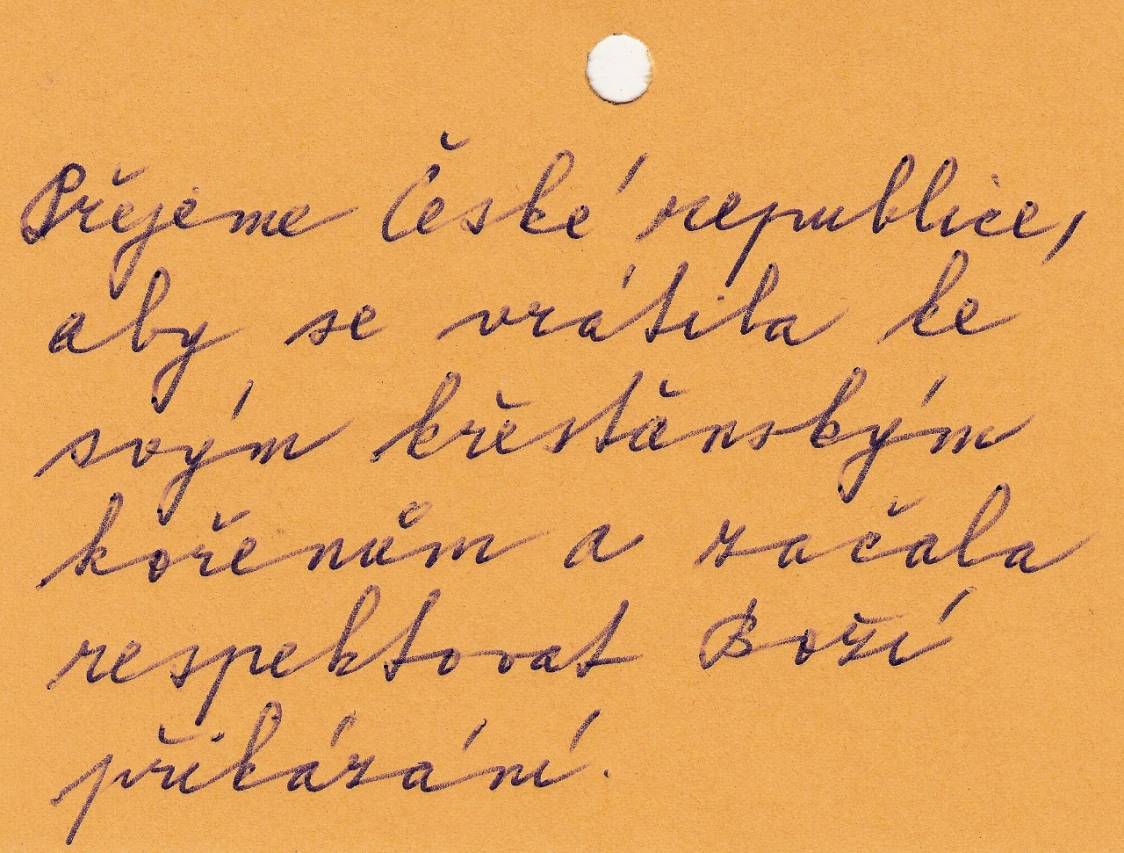 Přejeme České republice,
aby se vrátila ke
svým křesťanským
kořenům a začala
respektovat Boží
přikázání.